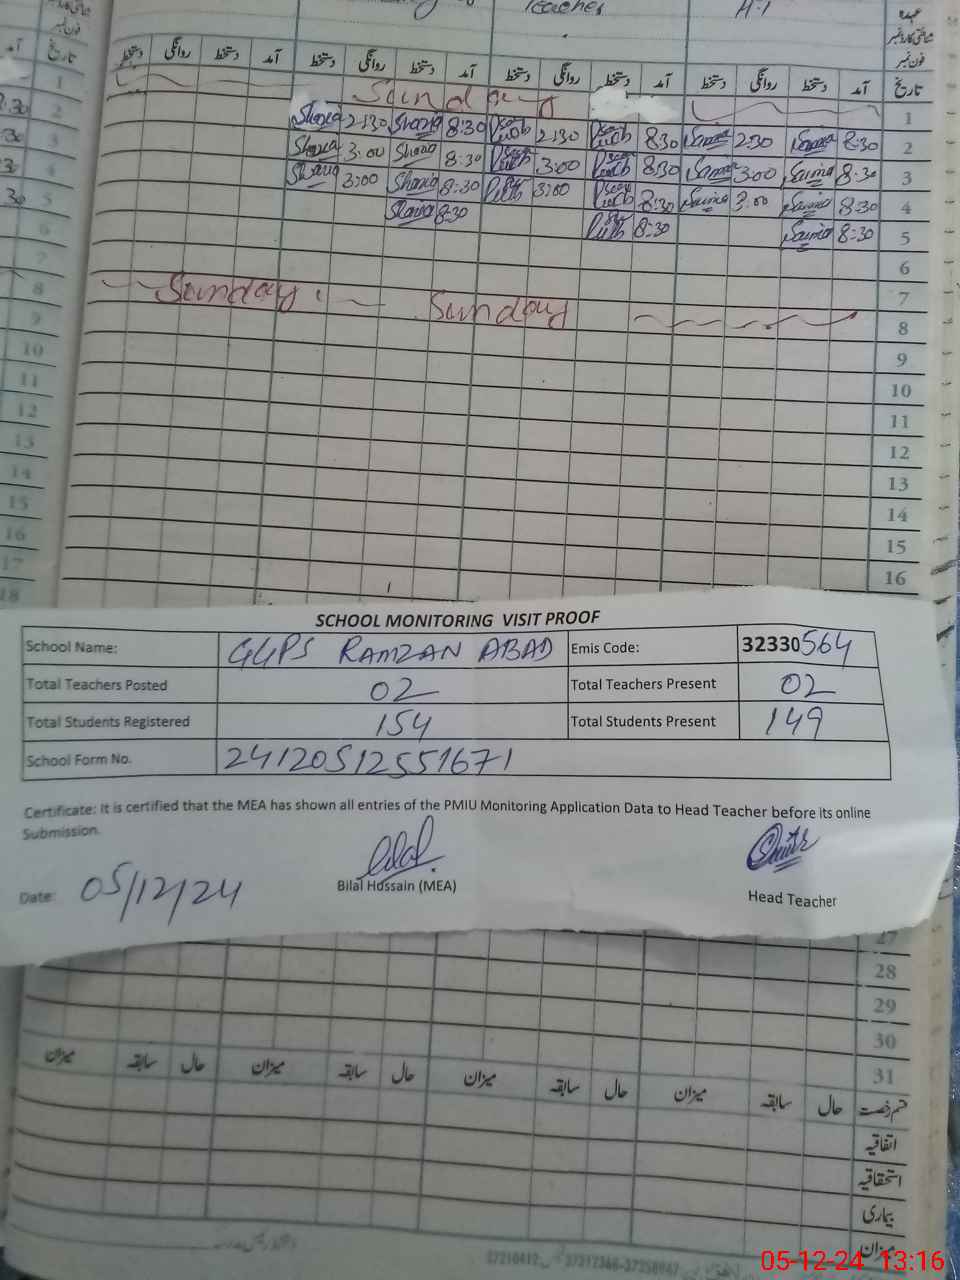 Teacher
عہدہ
شناختی کارڈ نمبر
فون نمبر
تاریخ آمد دستخط روانگی دستخط آمد دستخط روانگی دستخط آمد دستخط روانگی دستخط آمد دستخط روانگی دستخط
1 Sunday
2 8:30 Saima 2:30 Saima 8:30 2:30 8:30 Shazia 2:30 Shazia
3 8:30 Saima 3:00 Saima 8:30 3:00 8:30 Shazia 3:00 Shazia
4 8:30 Saima 3:00 Saima 8:30 3:00 8:30 Shazia 3:00 Shazia
5 8:30 Saima 8:30 8:30 Shazia
6
7
8 Sunday Sunday
9
10
11
12
13
14
15
16
SCHOOL MONITORING VISIT PROOF
School Name: GGPS RAMZAN ABAD Emis Code: 32330564
Total Teachers Posted 02 Total Teachers Present 02
Total Students Registered 154 Total Students Present 149
School Form No. 24120512551671
Certificate: It is certified that the MEA has shown all entries of the PMIU Monitoring Application Data to Head Teacher before its online
Submission.
Date: 05/12/24 Bilal Hussain (MEA) Head Teacher
27
28
29
30
31
قسم رخصت حال سابقہ میزان حال سابقہ میزان حال سابقہ میزان حال سابقہ میزان
اتفاقیہ
استحقاقیہ
بیماری
میزان
05-12-24 13:16